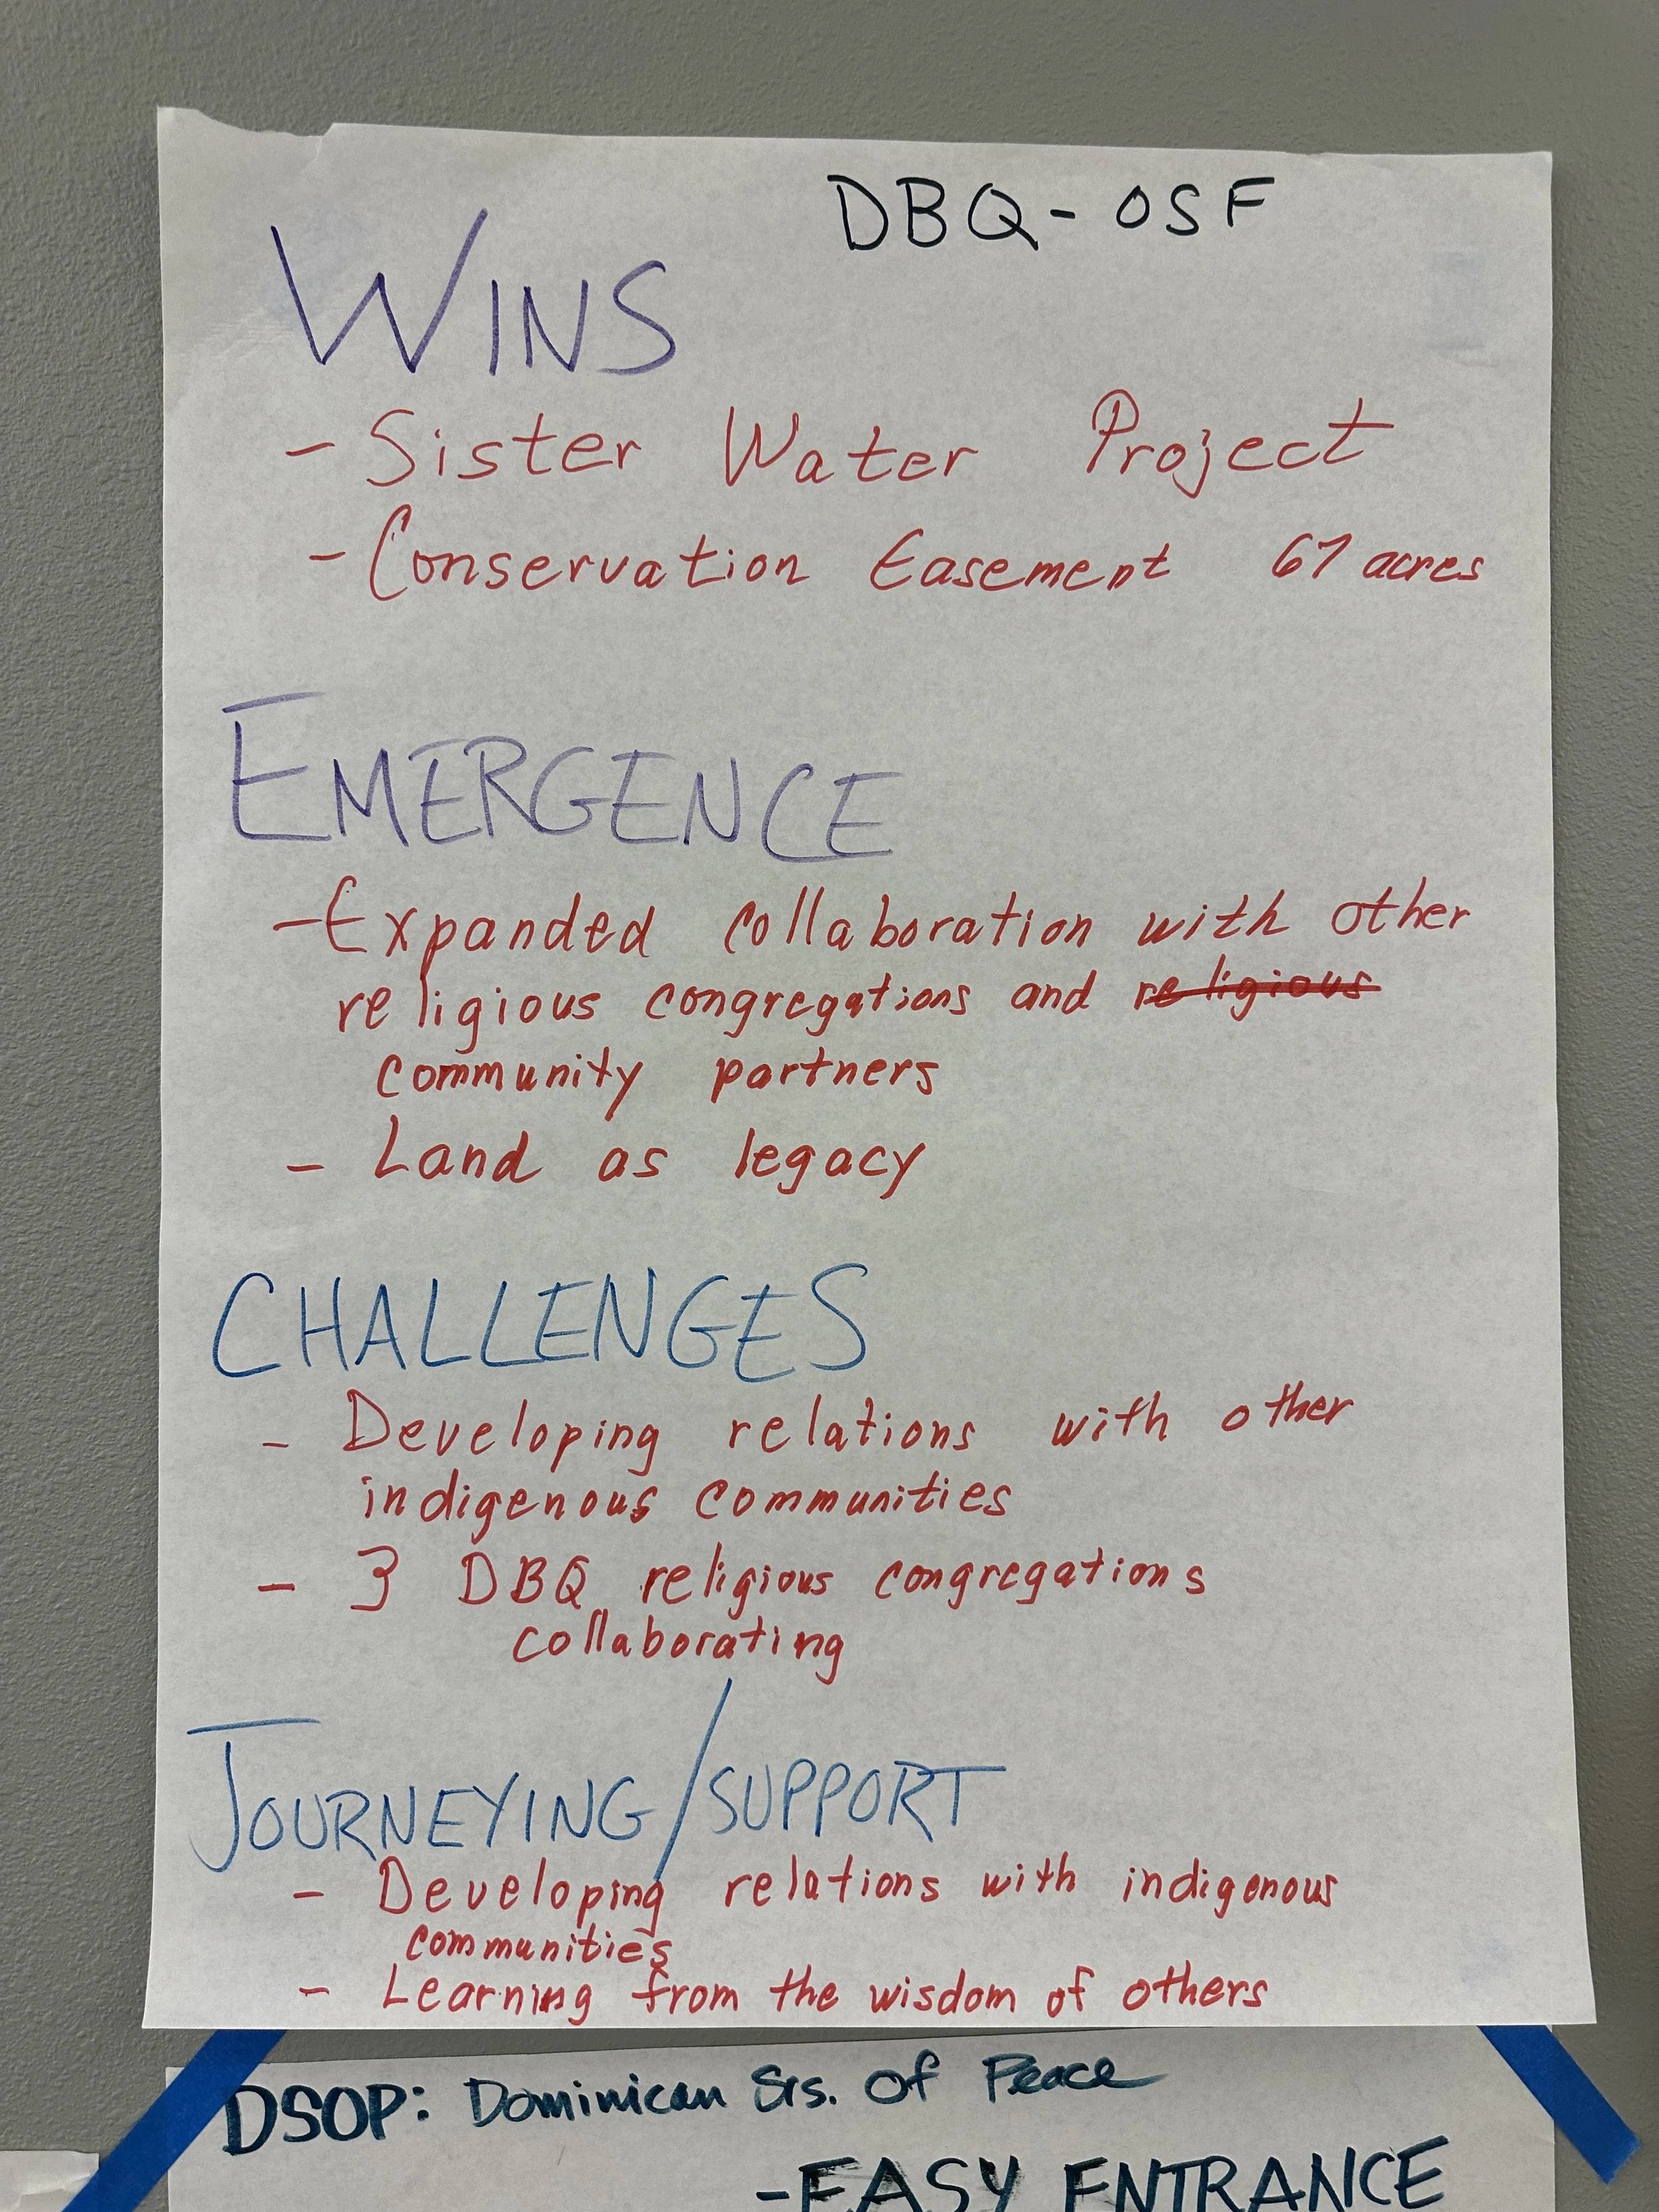 DBQ-OSF
WINS
- Sister Water Project
- Conservation Easement 67 acres
EMERGENCE
- Expanded collaboration with other
religious congregations and religious
community partners
- Land as legacy
CHALLENGES
- Developing relations with other
indigenous communities
- 3 DBQ religious congregations
collaborating
JOURNEYING/SUPPORT
- Developing relations with indigenous
communities
- Learning from the wisdom of others
DSOP: Dominican Srs. Of Peace
- EASY ENTRANCE